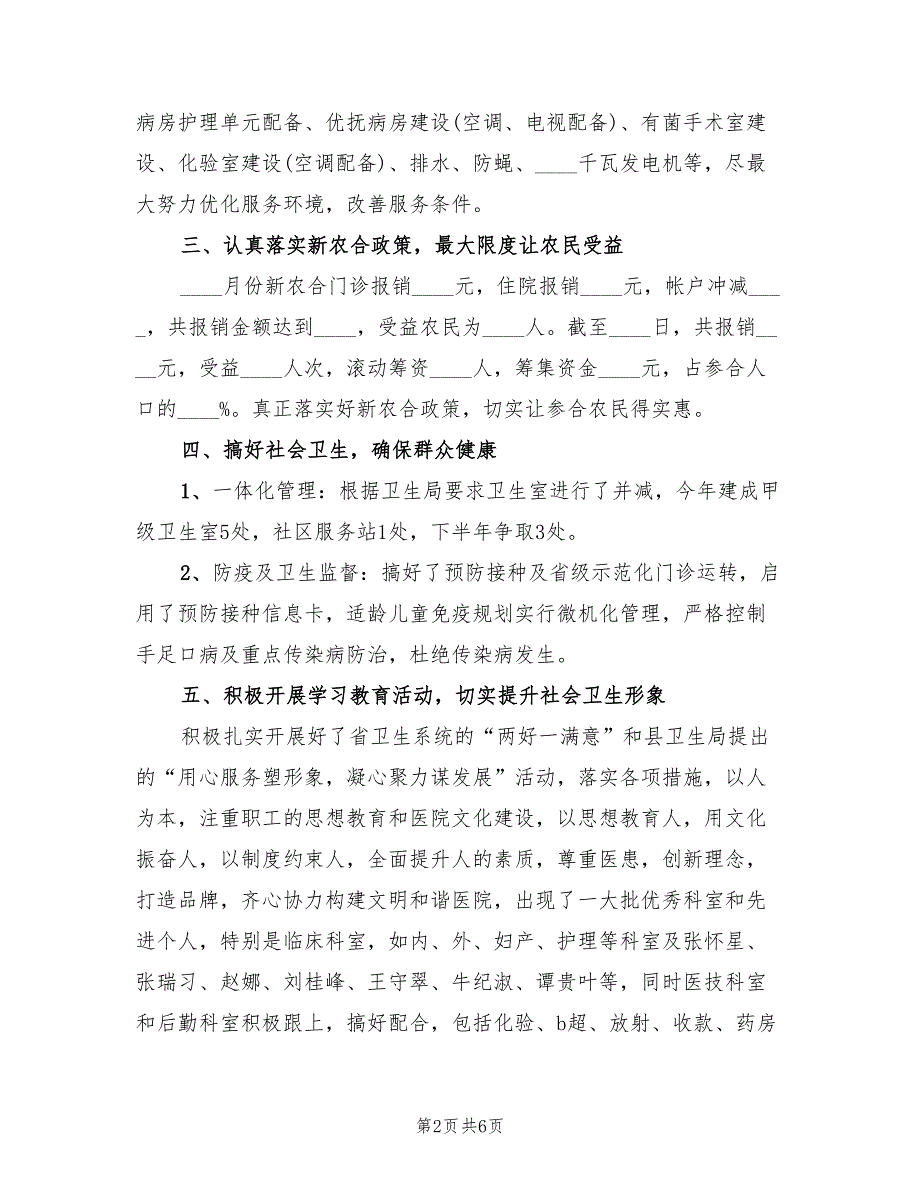 病房护理单元配备、优抚病房建设(空调、电视配备)、有菌手术室建
设、化验室建设(空调配备)、排水、防蝇、____千瓦发电机等，尽最
大努力优化服务环境，改善服务条件。
三、认真落实新农合政策，最大限度让农民受益
____月份新农合门诊报销____元，住院报销____元，帐户冲减___
_，共报销金额达到____，受益农民为____人。截至____日，共报销__
__元，受益____人次，滚动筹资____人，筹集资金____元，占参合人
口的____%。真正落实好新农合政策，切实让参合农民得实惠。
四、搞好社会卫生，确保群众健康
1、一体化管理：根据卫生局要求卫生室进行了并减，今年建成甲
级卫生室5处，社区服务站1处，下半年争取3处。
2、防疫及卫生监督：搞好了预防接种及省级示范化门诊运转，启
用了预防接种信息卡，适龄儿童免疫规划实行微机化管理，严格控制
手足口病及重点传染病防治，杜绝传染病发生。
五、积极开展学习教育活动，切实提升社会卫生形象
积极扎实开展好了省卫生系统的“两好一满意”和县卫生局提出
的“用心服务塑形象，凝心聚力谋发展”活动，落实各项措施，以人
为本，注重职工的思想教育和医院文化建设，以思想教育人，用文化
振奋人，以制度约束人，全面提升人的素质，尊重医患，创新理念，
打造品牌，齐心协力构建文明和谐医院，出现了一大批优秀科室和先
进个人，特别是临床科室，如内、外、妇产、护理等科室及张怀星、
张瑞习、赵娜、刘桂峰、王守翠、牛纪淑、谭贵叶等，同时医技科室
和后勤科室积极跟上，搞好配合，包括化验、b超、放射、收款、药房
第2页共6页